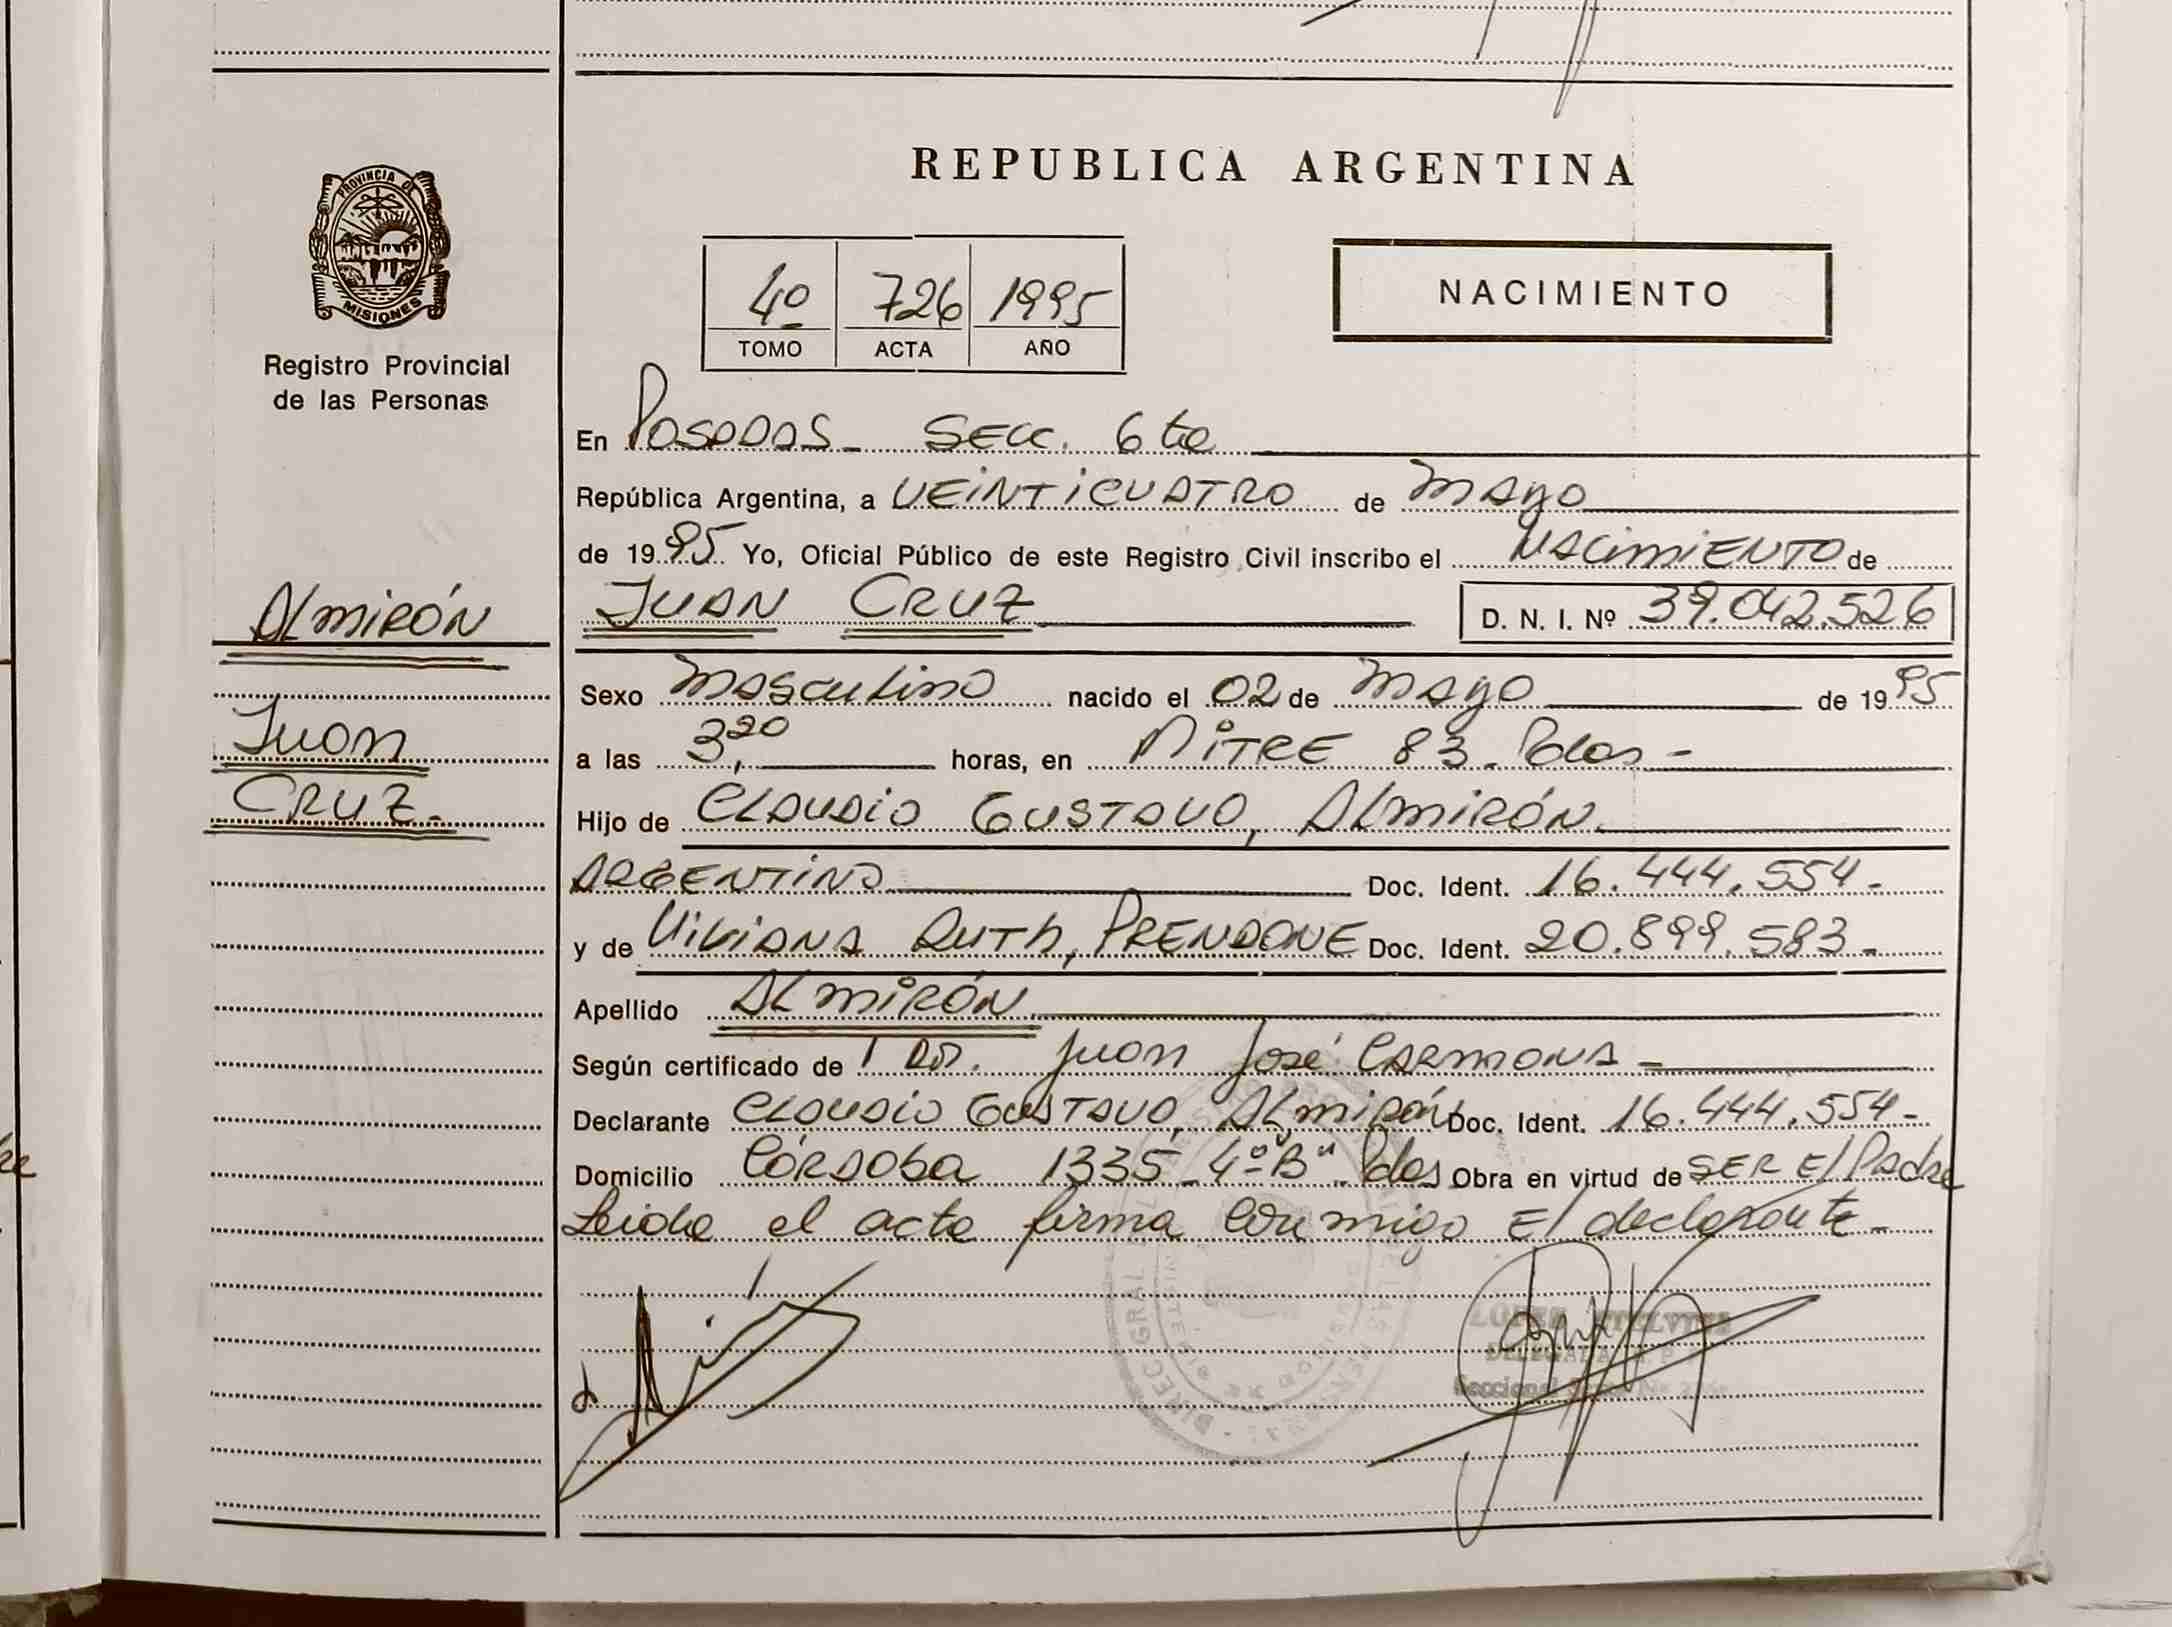 REPUBLICA ARGENTINA
PROVINCIA DE
MISIONES
Registro Provincial
de las Personas
4º 726 1995
TOMO ACTA AÑO
NACIMIENTO
En Posadas - Secc. 6ta
República Argentina, a VEINTICUATRO de Mayo
de 1995 Yo, Oficial Público de este Registro Civil inscribo el NACIMIENTO de
ALMIRÓN
JUAN CRUZ D. N. I. Nº 39.042.526
Sexo Masculino nacido el 02 de Mayo de 1995
Juan
a las 3,20 horas, en MITRE 83. Pdas -
CRUZ.-
Hijo de CLAUDIO GUSTAVO, ALMIRÓN
ARGENTINO Doc. Ident. 16.444.554.-
y de VIVIANA RUTH, PRENDONE Doc. Ident. 20.899.583.-
Apellido ALMIRÓN
Según certificado de Dr. Juan José CARMONA -
Declarante CLAUDIO GUSTAVO, ALMIRÓN Doc. Ident. 16.444.554-
Domicilio CÓRDOBA 1335 - 4º "B" Pdas Obra en virtud de SER El Padre
Leida el acta firma conmigo El declarante -
LOPEZ
DELEGADA
Seccional
DIREC. GRAL.